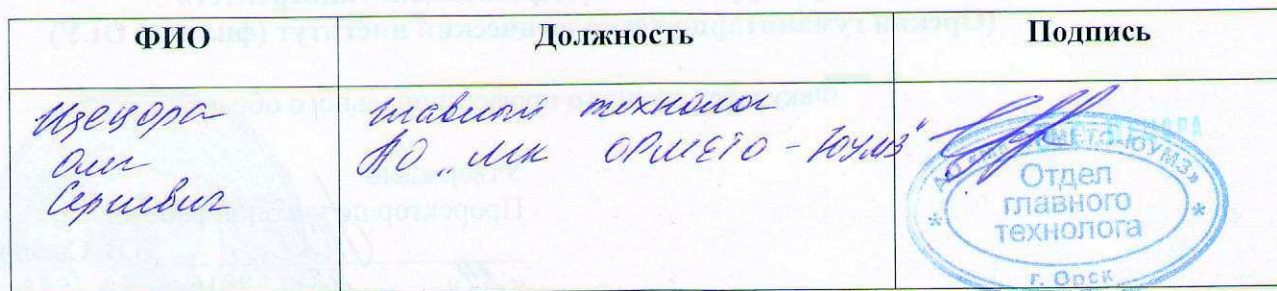 ФИО Должность Подпись
Олег
Сергеевич
главный технолог
АО „МК ОРМЕТО - ЮУМЗ"
АО «МК ОРМЕТО-ЮУМЗ»
Отдел
главного
технолога
г. Орск